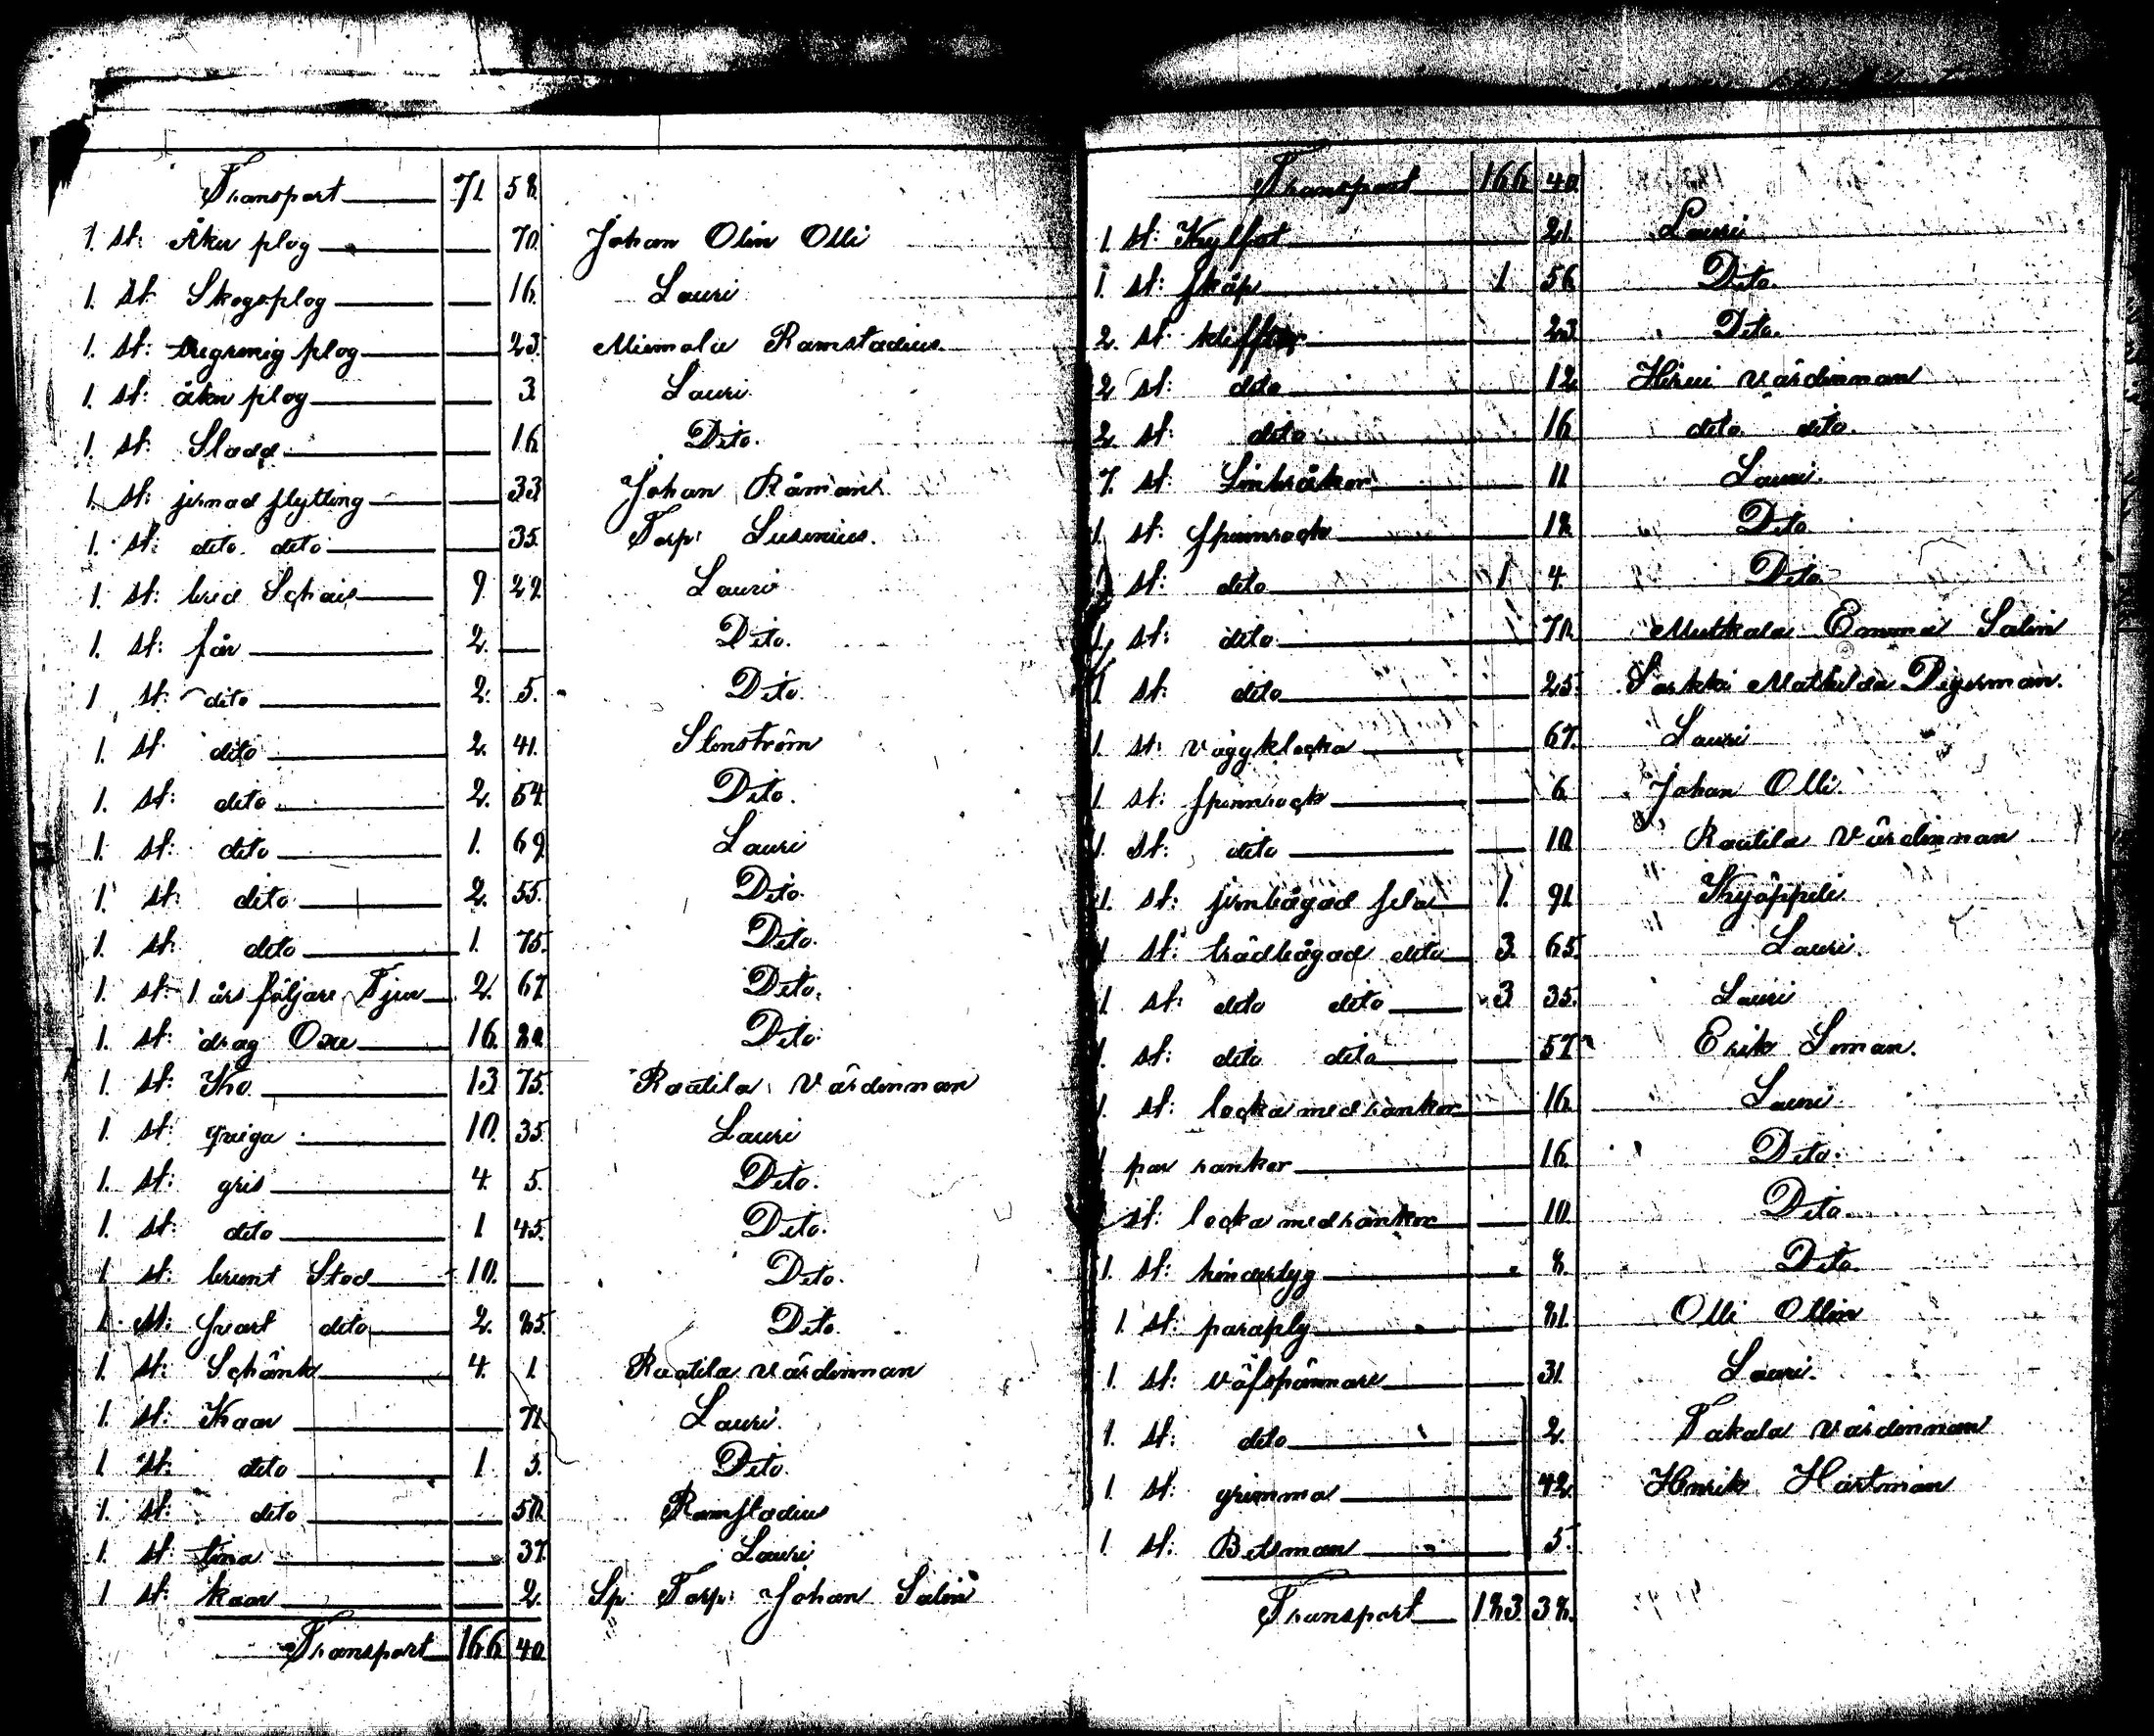 Transport 71. 58.
1. st: Åker plog 70. Johan Olin Olli
1. st: Skogsplog 16. Lauri
1. st: plog 23. Niemola Ramstadius
1. st: åker plog 3. Lauri.
1. st: Sladd 16. Dito.
1. st: jernad flytting 33. Johan Råman
1. st: dito dito 35. Torp: Lusenius.
1. st: bred Schais 9. 29. Lauri
1. st: får 2. Dito.
1 st: dito 2. 5. Dito.
1. st dito 2. 41. Stenström
1. st: dito 2. 54. Dito.
1. st: dito 1. 69. Lauri
1. st: dito 2. 55. Dito.
1. st: dito 1. 75. Dito.
1. st: 1 års följare Tjur 2. 67. Dito.
1. st: drag Oxe 16. 80. Dito.
1. st: Ko 13 75. Raatila Värdinnan
1. st: qviga 10. 35. Lauri
1. st: gris 4. 5. Dito.
1. st: dito 1 45. Dito.
1 st: brunt Stod 10. Dito.
1. st: svart dito 2. 85. Dito.
1. st: Schänk 4. 1. Raatila värdinnan
1. st: Kaar 71. Lauri.
1. st: dito 1. 3. Dito.
1. st: dito 50. Ramstadius
1. st: tina 37. Lauri
1 st: kaar 2. Sp: Torp: Johan Salin
Transport 166 40
Transport 166 40.
1. st: Kylfat 21. Lauri
1. st: skåp 1 56 Dito.
2. st: klifftor 23. Dito.
2 st: dito 12 Hirvi värdinnan
2. st: dito 16 dito dito.
7. st: Linbråkor 11 Lauri.
1. st: spinnrock 18 Dito
1 st: dito 1 4. Dito
1. st: dito 70. Mutkala Emma Salin
1. st: dito 25. Sarkki Mathilda Digerman.
1. st: väggklocka 67. Lauri
1 st: spinnrock 6 Johan Olli.
1. st: dito 10. Raatila Värdinnan
1. st: jernbågad sela 1. 91. Kyöppeli.
1 st: trädbågad dito 3. 65. Lauri.
1 st: dito dito 3 35. Lauri
1. st: dito dito 57. Erik Loman.
1. st: locka med rankor 16. Lauri
1 par rankor 16. Dito.
st: locka med rankor 10. Dito.
1. st: 8. Dito.
1. st: paraply 81. Olli Ollin
1. st: väfspännare 31. Lauri.
1. st: dito 2. Takala värdinnan
1. st: grimma 42. Henrik Hartman
1. st: Betsman 5.
Transport 183. 38.